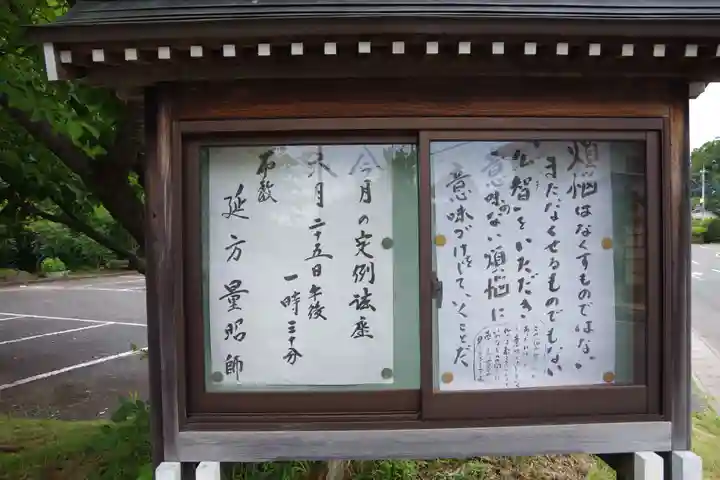 煩悩はなくすものではない
まだなくせるものでもない
仏智をいただき、
意味のない煩悩に
意味づけをして、いくことだ、
今月の定例法座
六月二十五日午後
一時三十分
布教
延方量昭師